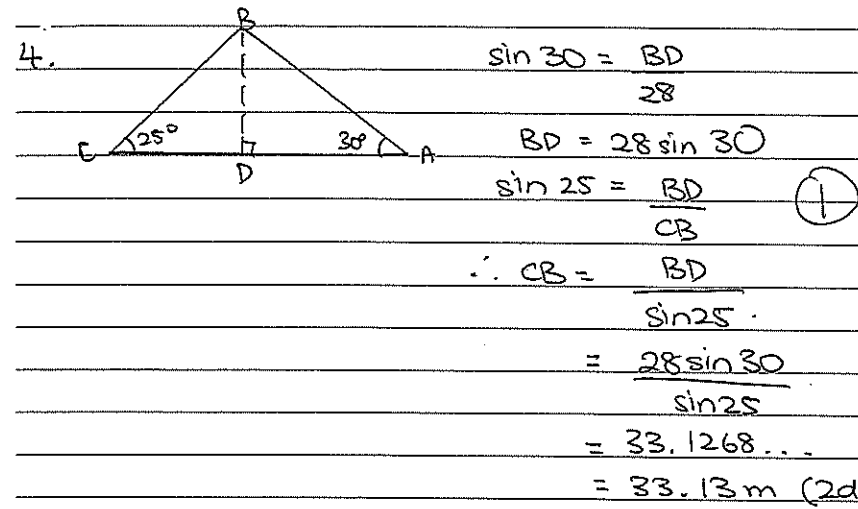 4.
B
25°
30°
C
A
D
sin 30 = BD
28
BD = 28 sin 30
sin 25 = BD
CB
1
∴ CB = BD
sin 25
= 28 sin 30
sin 25
= 33.1268...
= 33.13 m (2d